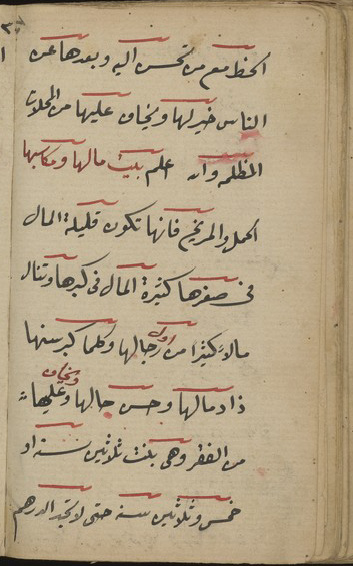 الحظ مع من تحسن اليه وبعدها عن
الناس خير لها ويخاف عليها من المحلات
المظلمه وان علم بيت مالها ومكاسبها
الحمل والمريخ فانها تكون قليلة المال
فى صغرها كثيرة المال فى كبرها وتنال
مالا كثيرا من اول رجالها وكلما كبر سنها
زاد مالها وحسن حالها ويخاف عليها
من الفقر وهى بلغت ثلاثين سنة او
خمس وثلاثين سنة حتى لا تجد الدرهم